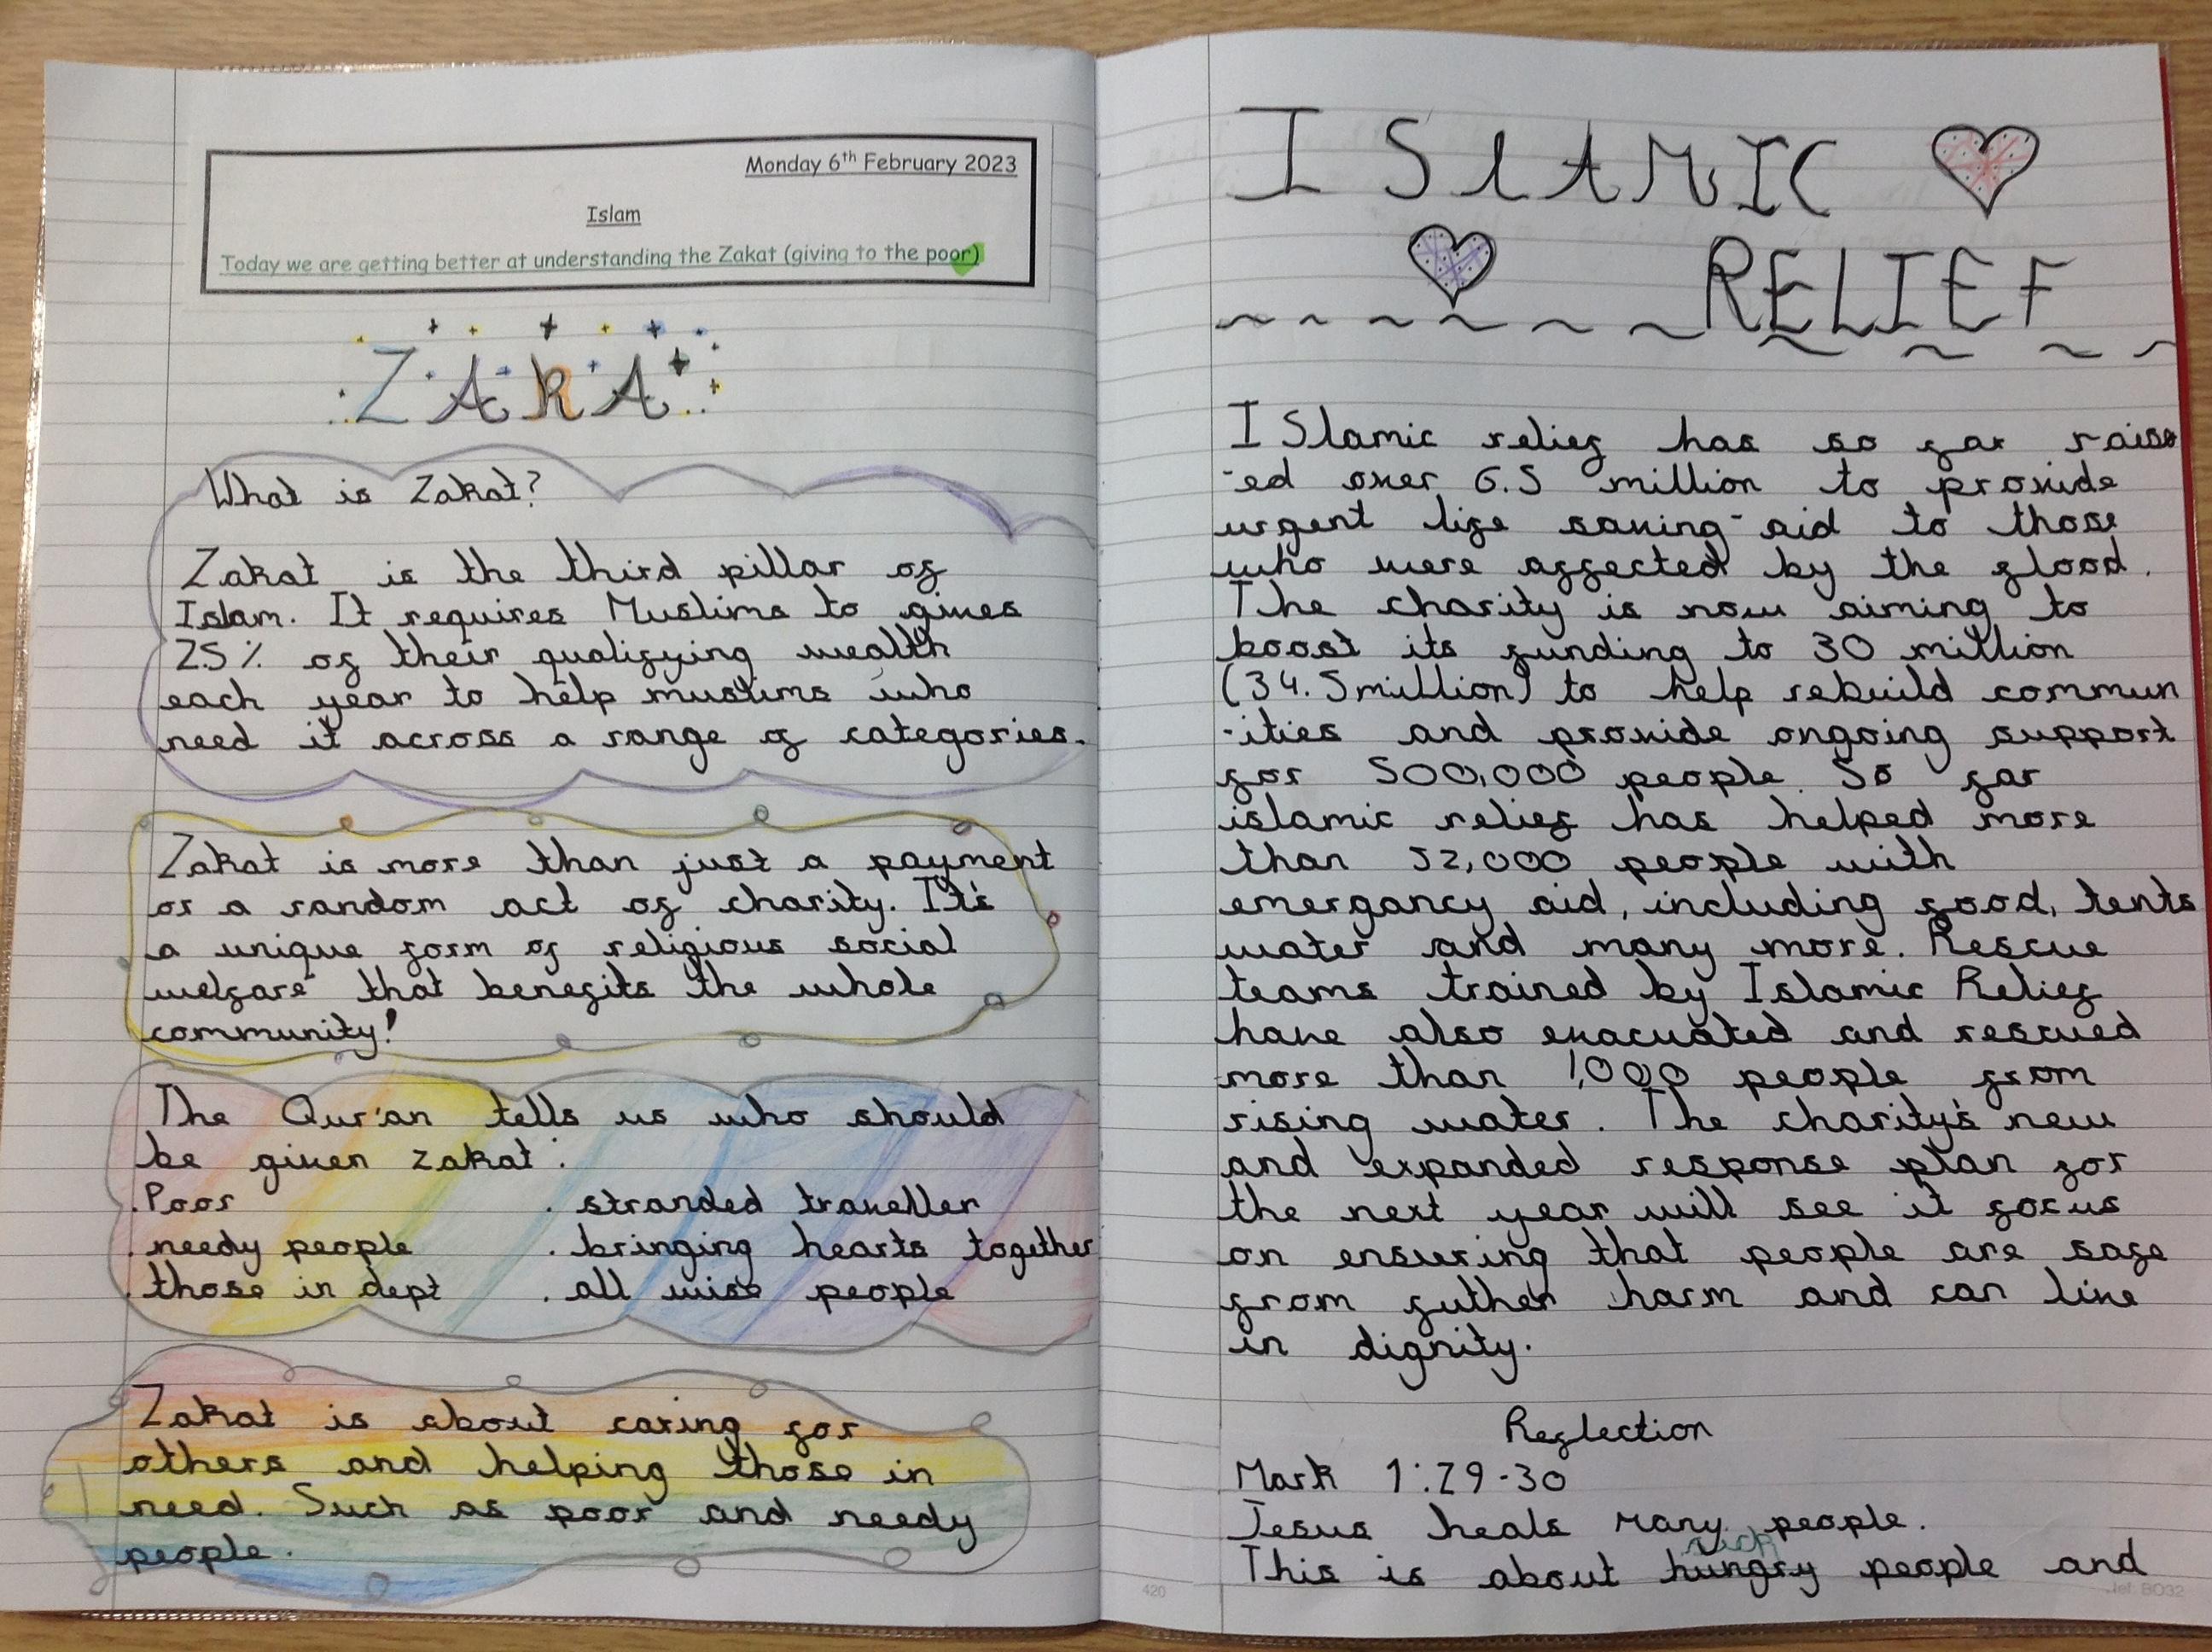 Monday 6th February 2023
Islam
Today we are getting better at understanding the Zakat (giving to the poor)
ZAKAt
What is Zakat?
Zakat is the third pillar of
Islam. It requires Muslims to gives
25% of their qualifying wealth
each year to help muslims who
need it across a range of categories.
Zakat is more than just a payment
or a random act of charity. It's
a unique form of religious social
welfare that benefits the whole
community!
The Qur'an tells us who should
be given zakat:
.Poor
. needy people
. those in dept
. stranded traveller
. bringing hearts together
. all wise people
Zakat is about caring for
others and helping those in
need. Such as poor and needy
people.
ISLAMIC
RELIEF
ISlamic relief has so far raise
-ed over 6.5 million to provide
urgent life saving-aid to those
who were affected by the flood.
The charity is now aiming to
boost its funding to 30 million
(34.5million) to help rebuild commun
-ities and provide ongoing support
for 500,000 people. So far
islamic relief has helped more
than 52,000 people with
emergancy aid, including food, tents
water and many more. Rescue
teams trained by Islamic Relief
have also evacuated and rescued
more than 1,000 people from
rising water. The charity's new
and expanded response plan for
the next year will see it focus
on ensuring that people are safe
from futher harm and can live
in dignity.
Reflection
Mark 1:29-30
Jesus heals many people.
sick
This is about hungry people and
420
BO32